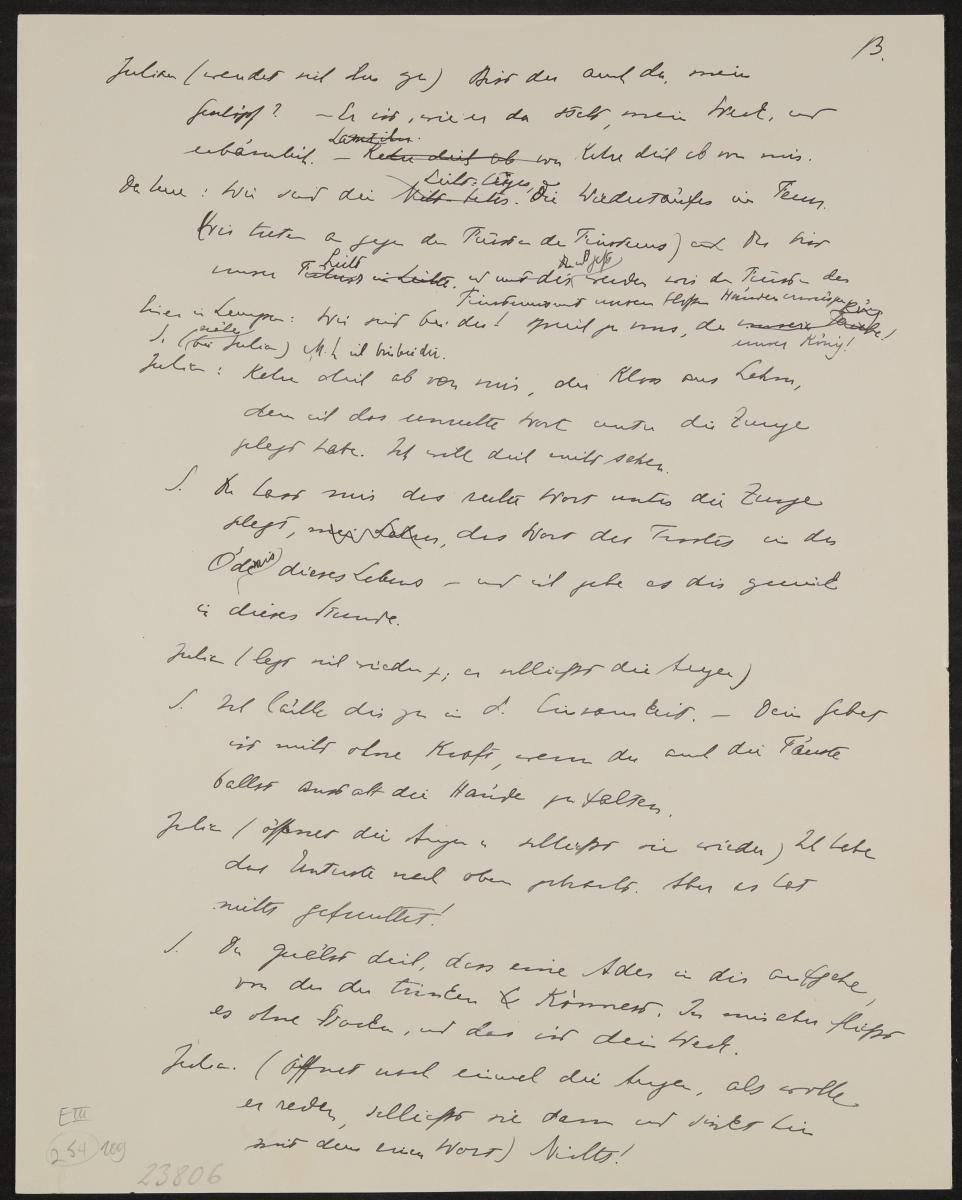 B.
Julian (wendet sich ihm zu) Bist du auch da, mein
Geschöpf? – Er ist, wie er da steht, mein Werk, und
erbärmlich. – Kehre dich ab von Kehre dich ab von mir.
: Wir sind die Die Wiedertäufer im
(Wir treten an gegen den Fürsten der Finsternis) und Du bist
unser Licht und reden wir den Fürsten der
Finsternis mit unsern blossen Händen
: Wir sind bei dir! sprich zu uns, du unser König!
S. (bei Julian) ich bin bei dir.
Julian: Kehre dich ab von mir, du Kloss aus Lehm,
dem ich das unrechte Wort unter die Zunge
gelegt habe. Ich will dich nicht sehen.
S. Du hast mir das rechte Wort unter die Zunge
gelegt, mein Lehrer, das Wort des Trostes in der
Ödnis dieses Lebens – und ich gebe es dir zurück
in dieser Stunde.
Julian (legt sich wieder; er schliesst die Augen)
S. Ich falle dir zu in d. Einsamkeit. – Dein Gebet
ist nicht ohne Kraft, wenn du auch die Fäuste
ballst anstatt die Hände zu falten.
Julian (öffnet die Augen u. schliesst sie wieder) Ich habe
das Unterste nach oben gekehrt. Aber es hat
nichts gefruchtet!
S. Du quälst dich, dass eine Ader in dir aufgehe,
von der du trinken könnest. In mir aber fliesst
es ohne Stocken, und das ist dein Werk.
Julian. (öffnet noch einmal die Augen, als wolle
er reden, schliesst sie dann und sinkt hin
mit dem einen Wort) Nichts!
E III
254 109
23806